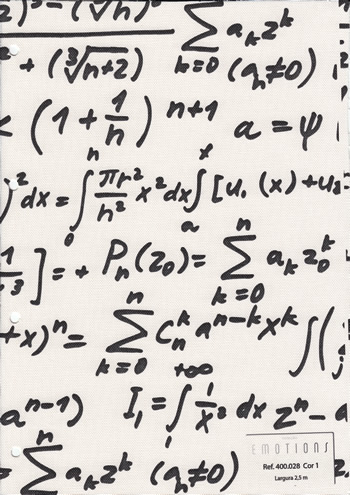 )² - (√h)²
∑ aₖzᵏ
k=0 (aₙ≠0)
+ (∛n+2)
< (1 + 1/n) n+1
a = ψ
)² dx = ∫₀ʰ πr²/h² x²dx ∫ₐˣ [u₁ (x) + u₂
] = + Pₙ(z₀) = ∑ₖ₌₀ⁿ aₖz₀ᵏ
+x)ⁿ = ∑ₖ₌₀ⁿ Cₙᵏ aⁿ⁻ᵏxᵏ ∫(
aⁿ⁻¹) I₁ = ∫₁⁺∞ 1/x² dx zⁿ -
n
∑ aₖzᵏ (aₙ≠0)
EMOTIONS
Ref. 400.028 Cor 1
Largura 2,5 m